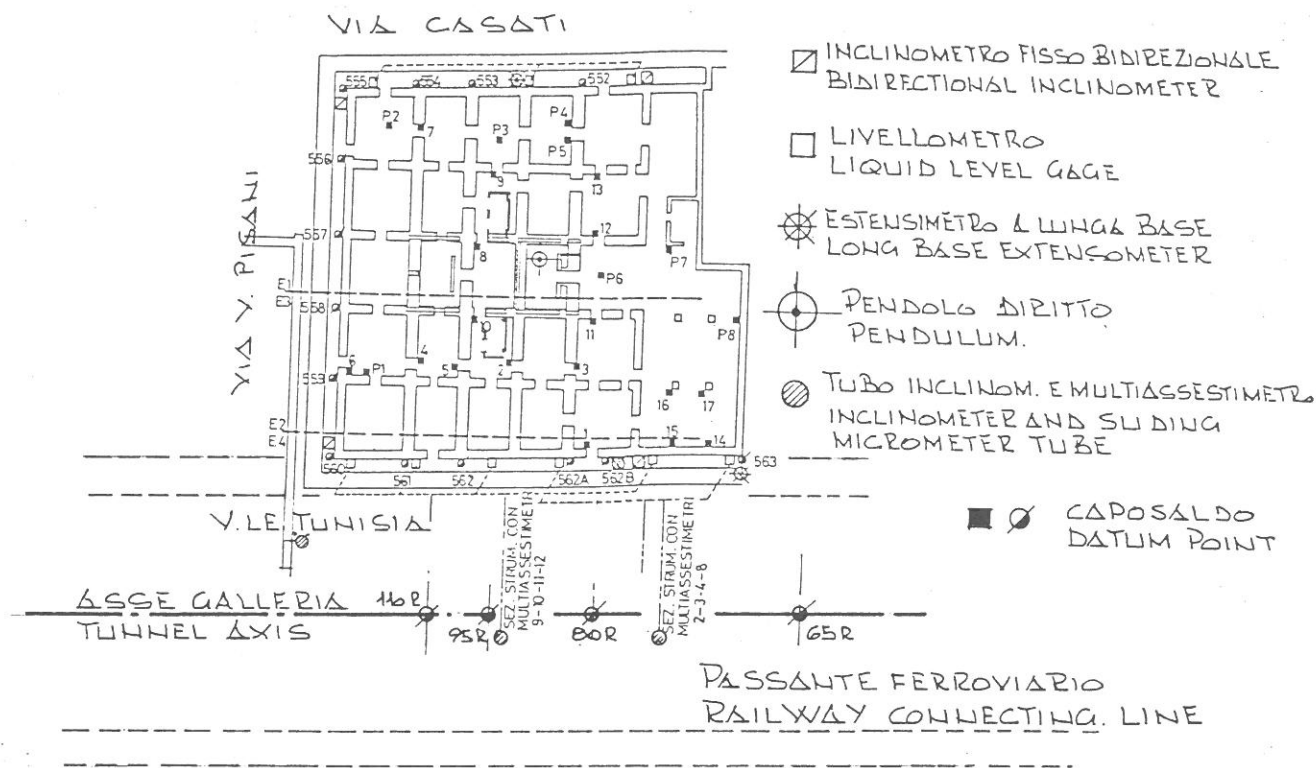 VIA CASATI
555 554 553 552
P2 7 P3 P4
P5
556 9 13
557 12
8 P7
P6
E1
E3 558
10 11 P8
4
6 P1 5 2 3
553
16 17
E2
E4 15 14
560 561 562 562A 562B 563
VIA V. PISANI
V.LE TUNISIA
SEZ. STRUM. CON
MULTIASSESTIMETRI
9-10-11-12
SEZ. STRUM. CON
MULTIASSESTIMETRI
2-3-4-8
ASSE GALLERIA 110R
TUNNEL AXIS
95R 80R 65R
PASSANTE FERROVIARIO
RAILWAY CONNECTING. LINE
INCLINOMETRO FISSO BIDIREZIONALE
BIDIRECTIONAL INCLINOMETER
LIVELLOMETRO
LIQUID LEVEL GAGE
ESTENSIMETRO A LUNGA BASE
LONG BASE EXTENSOMETER
PENDOLO DIRITTO
PENDULUM.
TUBO INCLINOM. E MULTIASSESTIMETRO
INCLINOMETER AND SLIDING
MICROMETER TUBE
CAPOSALDO
DATUM POINT